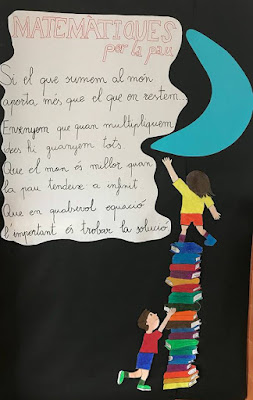 MATEMÀTIQUES
per la pau
Si el que sumem al món
aporta més que el que en restem...
Ensenyem que quan multipliquem
hi guanyem tots
Que el món és millor quan
la pau tendeix a infinit
Que en qualsevol equació
l'important és trobar la solució